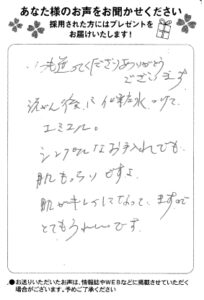 あなた様のお声をお聞かせください
採用された方にはプレゼントを
お届けいたします!
いつも送ってくださりありがとう
ございます
洗がん後に化粧水つけて、
エミエル。
シンプルなお手入れでも、
肌もっちりですよ。
肌がキレイになって、ますので
とてもうれしいです。
●お送りいただいたお声は、情報誌やWEBなどに掲載させていただく
場合がございます。予めご了承ください